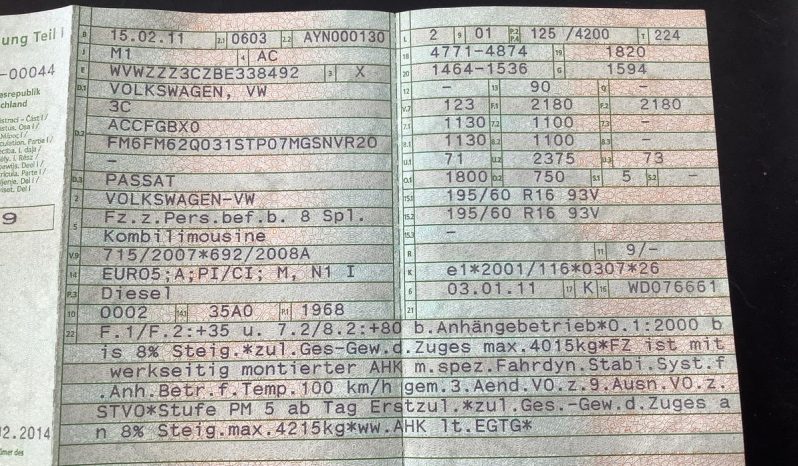 ung Teil I
-00044
asrepublik
schland
9
02.2014
B 15.02.11 2.1 0603 2.2 AYN000130
J M1 4 AC
E WVWZZZ3CZBE338492 3 X
D.1 VOLKSWAGEN, VW
3C
D.2 ACCFGBX0
FM6FM62Q031STP07MGSNVR20
-
D.3 PASSAT
2 VOLKSWAGEN-VW
5 Fz.z.Pers.bef.b. 8 Spl.
Kombilimousine
V.9 715/2007*692/2008A
14 EURO5;A;PI/CI; M, N1 I
P.3 Diesel
10 0002 14.1 35A0 P.1 1968
L 2 9 01 P.2 P.4 125 /4200 T 224
18 4771-4874 19 1820
20 1464-1536 G 1594
12 - 13 90 Q -
V.7 123 F.1 2180 F.2 2180
7.1 1130 7.2 1100 -
8.1 1130 8.2 1100 -
U.1 71 U.2 2375 U.3 73
O.1 1800 O.2 750 S.1 5 S.2 -
15.1 195/60 R16 93V
15.2 195/60 R16 93V
15.3 -
R 11 9/-
K e1*2001/116*0307*26
6 03.01.11 17 K 16 WD076661
21
22 F.1/F.2:+35 u. 7.2/8.2:+80 b.Anhängebetrieb*O.1:2000 b
is 8% Steig.*zul.Ges-Gew.d.Zuges max.4015kg*FZ ist mit
werkseitig montierter AHK m.spez.Fahrdyn.Stabi.Syst.f
.Anh.Betr.f.Temp.100 km/h gem.3.Aend.VO.z.9.Ausn.VO.z.
STVO*Stufe PM 5 ab Tag Erstzul.*zul.Ges.-Gew.d.Zuges a
n 8% Steig.max.4215kg*ww.AHK lt.EGTG*